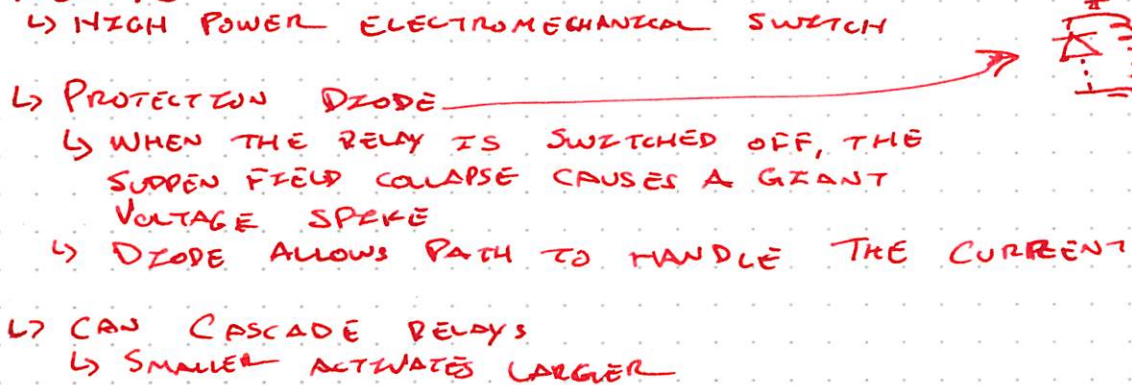 ↳ HIGH POWER ELECTROMECHANICAL SWITCH
↳ PROTECTION DIODE
↳ WHEN THE RELAY IS SWITCHED OFF, THE
SUDDEN FIELD COLLAPSE CAUSES A GIANT
VOLTAGE SPIKE
↳ DIODE ALLOWS PATH TO HANDLE THE CURRENT
↳ CAN CASCADE RELAYS
↳ SMALLER ACTIVATES LARGER